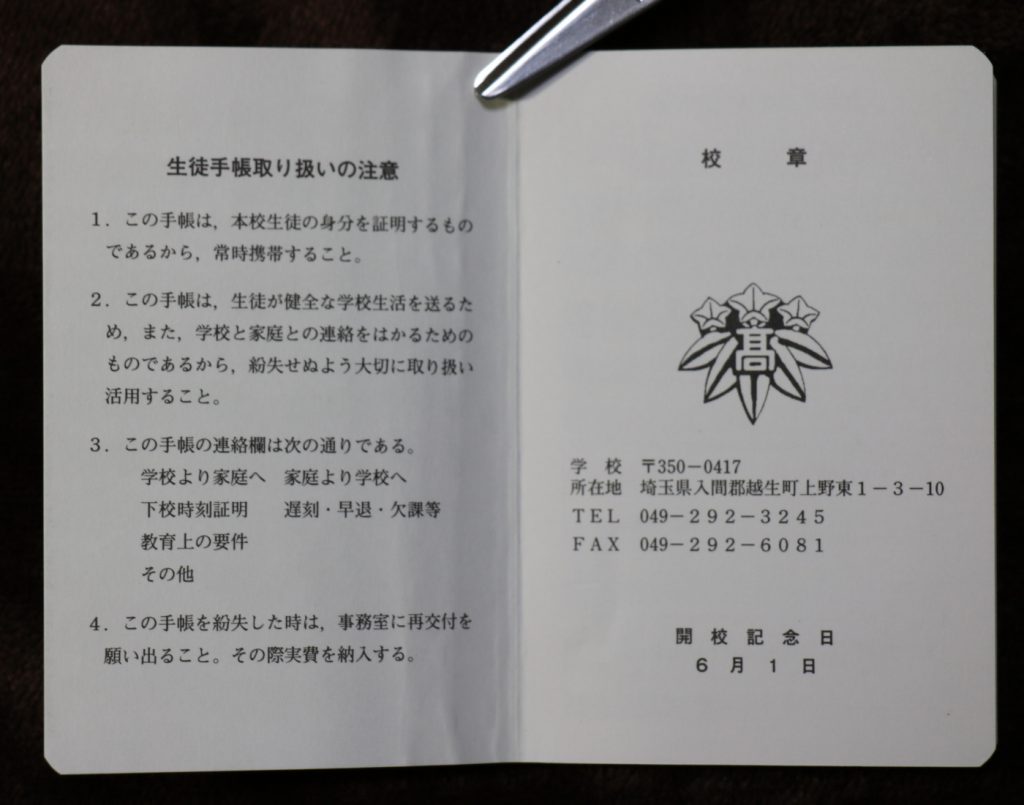 生徒手帳取り扱いの注意
1．この手帳は，本校生徒の身分を証明するもの
であるから，常時携帯すること。
2．この手帳は，生徒が健全な学校生活を送るた
め，また，学校と家庭との連絡をはかるための
ものであるから，紛失せぬよう大切に取り扱い
活用すること。
3．この手帳の連絡欄は次の通りである。
学校より家庭へ　家庭より学校へ
下校時刻証明　　遅刻・早退・欠課等
教育上の要件
その他
4．この手帳を紛失した時は，事務室に再交付を
願い出ること。その際実費を納入する。
校　章
髙
学　校　〒350－0417
所在地　埼玉県入間郡越生町上野東１－３－10
ＴＥＬ　049－２９２－３２４５
ＦＡＸ　049－２９２－６０８１
開校記念日
６月１日